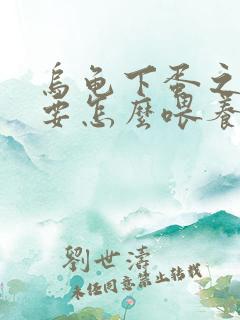 烏龜下蛋之
要怎麼喂養
劉世濤
未經同意禁止轉載